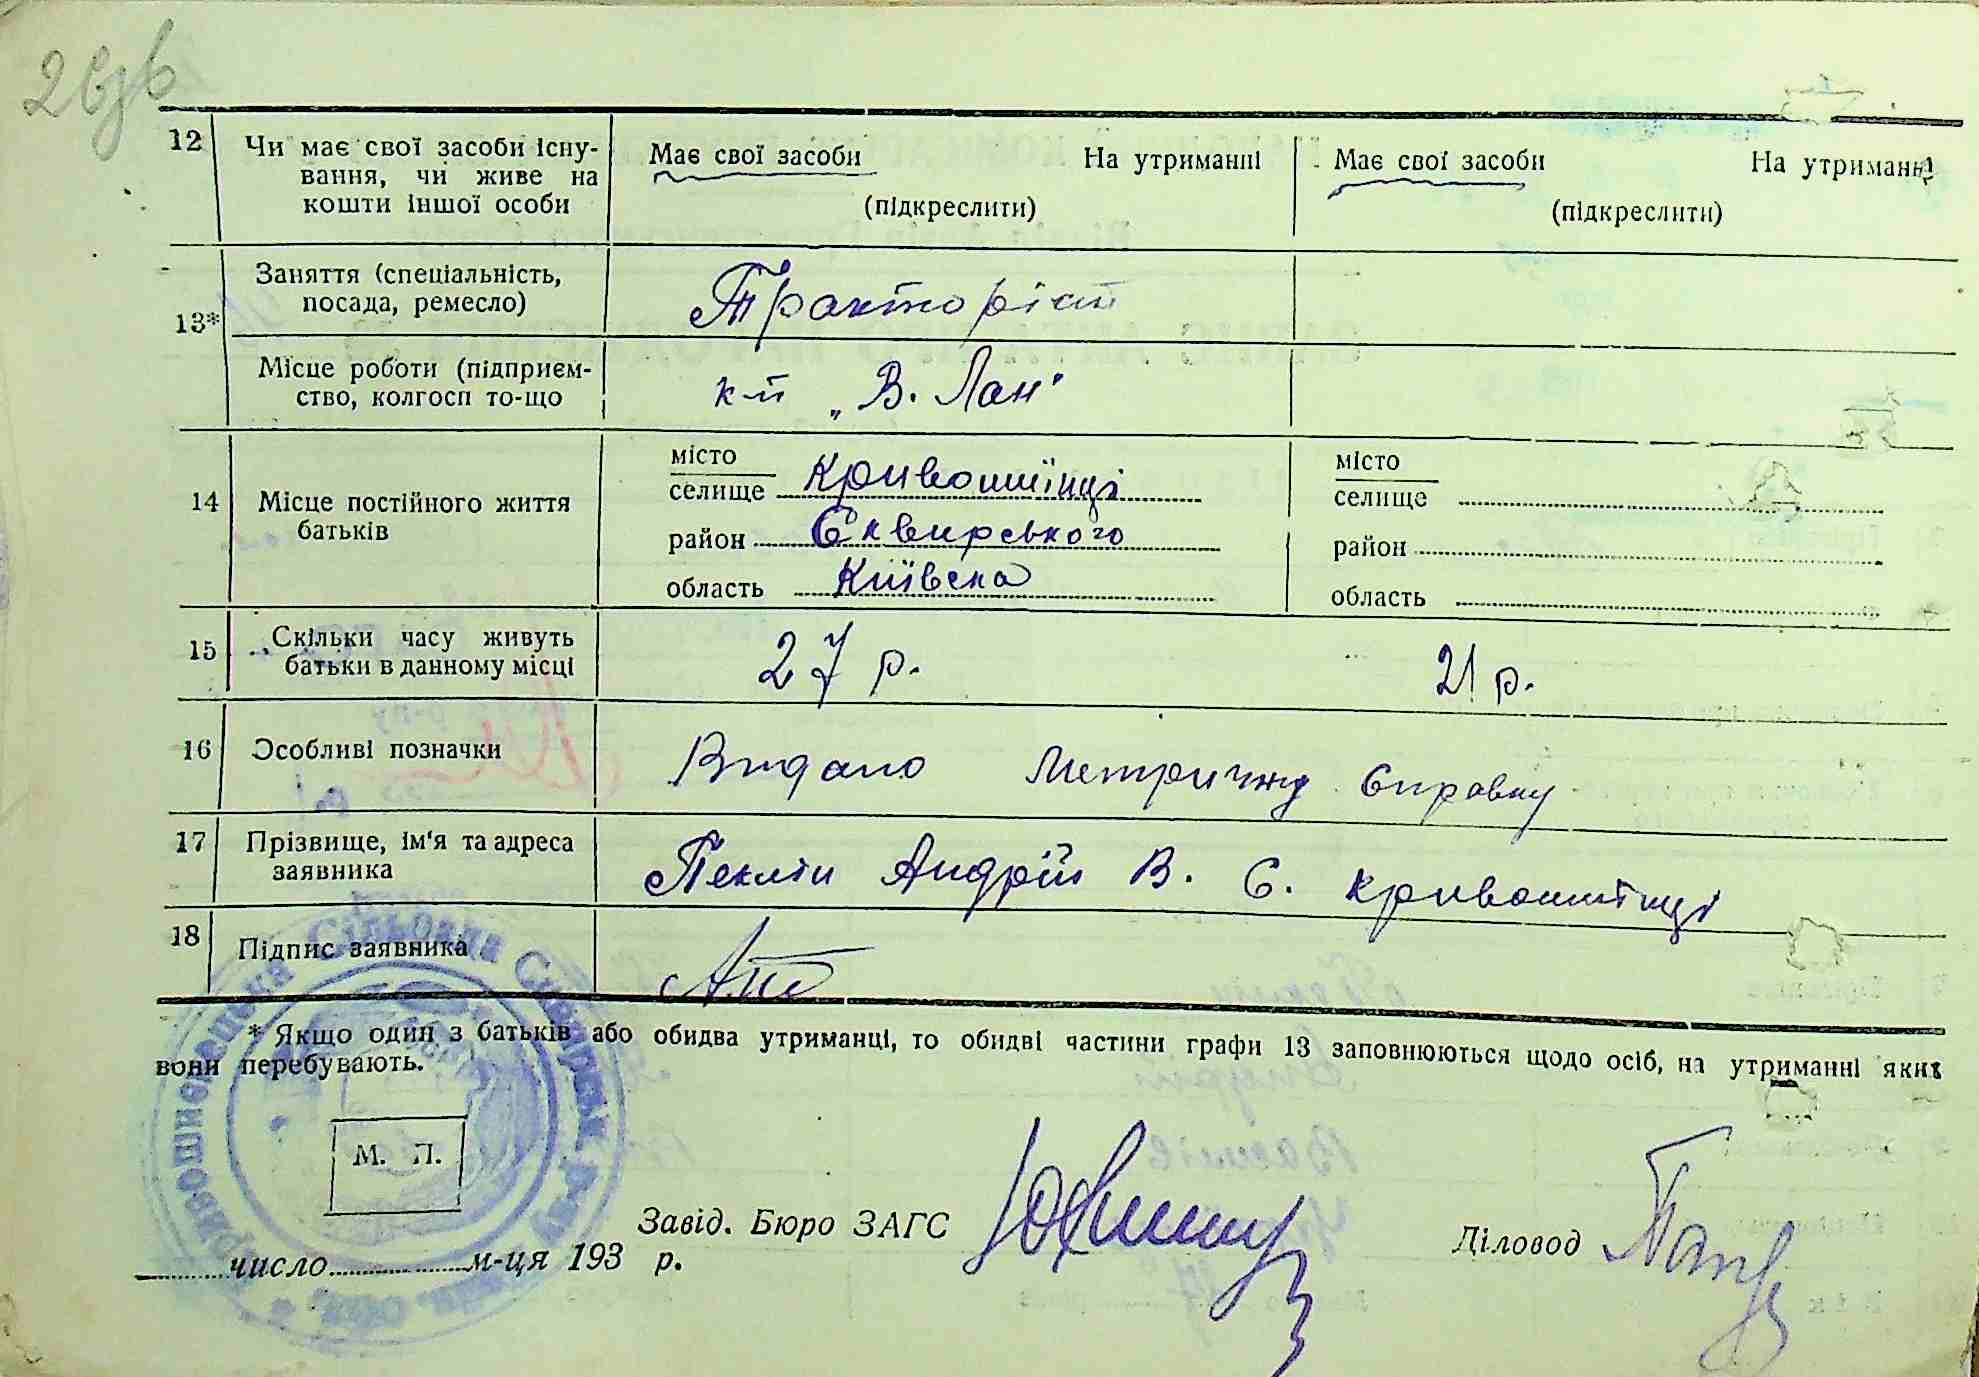 12 Чи має свої засоби існу-
вання, чи живе на
кошти іншої особи
Має свої засоби На утриманні
(підкреслити)
Має свої засоби На утриманні
(підкреслити)
13*
Заняття (спеціальність,
посада, ремесло)
Тракторіст
Місце роботи (підприєм-
ство, колгосп то-що
к-п „В. Лан"
14 Місце постійного життя
батьків
місто
селище Кривошиїнці
район Сквирського
область Київська
місто
селище
район
область
15 Скільки часу живуть
батьки в данному місці
27 р. 21 р.
16 Особливі позначки
Видано Метричну Справку
17 Прізвище, ім'я та адреса
заявника
Пеклін Андрій В. С. Кривошиїнці
18 Підпис заявника
* Якщо один з батьків або обидва утриманці, то обидві частини графи 13 заповнюються щодо осіб, на утриманні яких
вони перебувають.
М. П.
Завід. Бюро ЗАГС
Діловод
число м-ця 193 р.